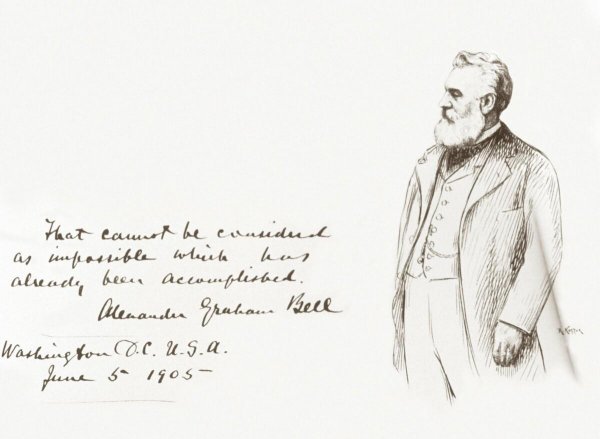 That cannot be considered
as impossible which has
already been accomplished.
Alexander Graham Bell
Washington D.C. U.S.A.
June 5 1905